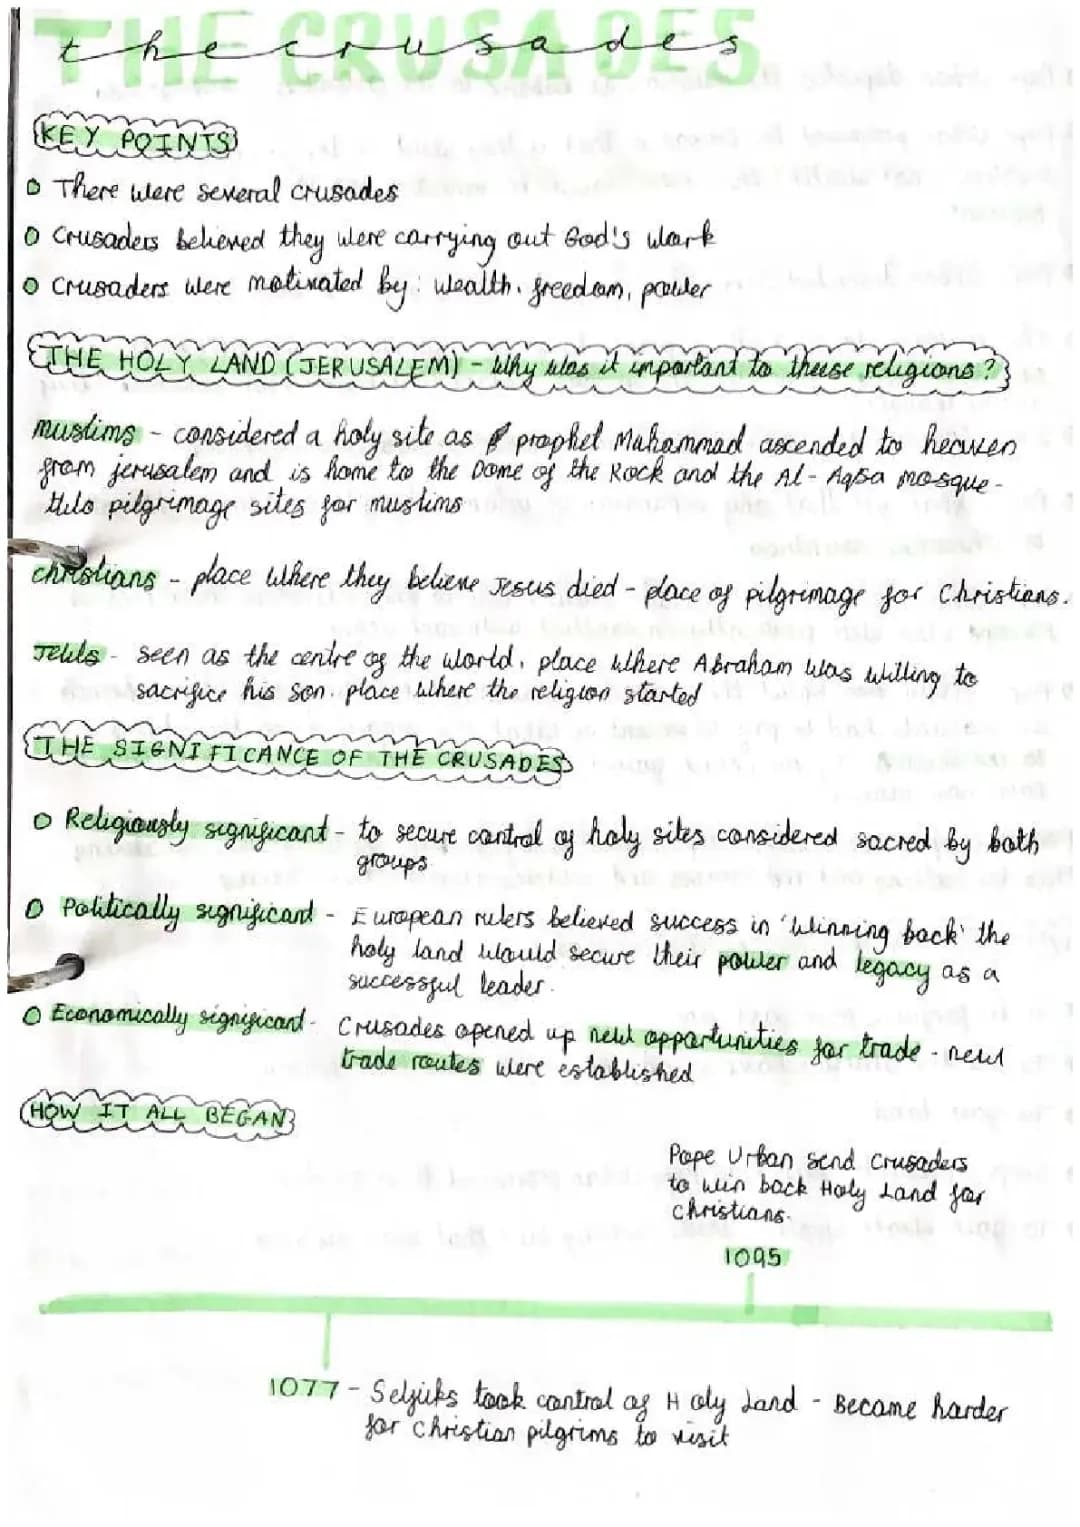 THE CRUSADES
the crusades
KEY POINTS
There were several crusades
Crusaders believed they were carrying out God's work
Crusaders were motivated by: wealth, freedom, power
THE HOLY LAND (JERUSALEM) - Why was it important to these religions?
Muslims - considered a holy site as prophet Muhammad ascended to heaven
from jerusalem and is home too the Dome of the Rock and the Al-Aqsa mosque -
two pilgrimage sites for muslims
christians - place where they believe Jesus died - place of pilgrimage for Christians.
Jews - seen as the centre of the world, place where Abraham was willing to
sacrifice his son, place where the religion started
THE SIGNIFICANCE OF THE CRUSADES
Religiously significant - to secure control of holy sites considered sacred by both
groups.
Politically significant - European rulers believed success in 'winning back' the
holy land would secure their power and legacy as a
successful leader.
Economically significant - Crusades opened up new opportunities for trade - new
trade routes were established
HOW IT ALL BEGAN
Pope Urban send crusaders
to win back Holy Land for
christians.
1095
1077 - Seljuks took control of Holy Land - Became harder
for christian pilgrims to visit